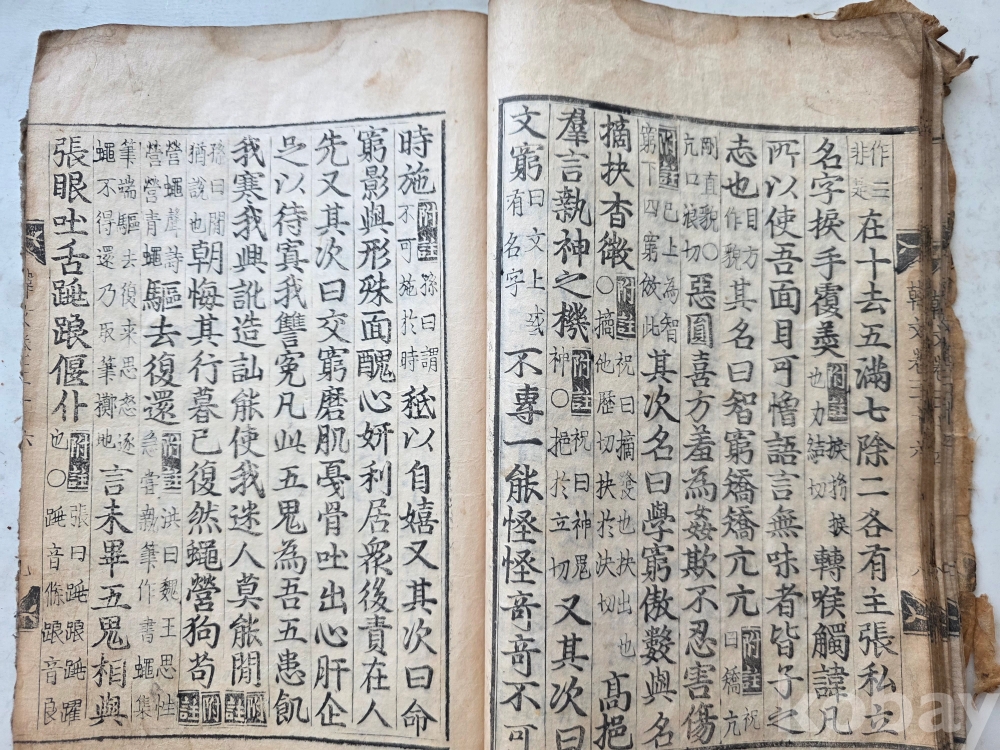 作三非是在十去五滿七除二各有主張私立
名字捩手覆羹附註捩拗捩也力結切轉喉觸諱凡
所以使吾面目可憎語言無味者皆子之
志也目方作貌其名曰智窮矯矯亢亢附註祝曰矯亢
剛直貌○亢口浪切惡圓喜方羞為姦欺不忍害傷
附註巳上為智窮下四窮倣此其次名曰學窮傲數與名
摘抉杳微附註祝曰摘發也抉出也○摘他歷切抉於決切高挹
羣言執神之機附註祝曰神鬼神○挹於立切又其次曰
文窮曰文上或有名字不專一能怪怪奇奇不可
時施附註孫曰謂不可施於時秪以自嬉又其次曰命
窮影與形殊面醜心妍利居衆後責在人
先又其次曰交窮磨肌戞骨吐出心肝企
足以待寘我讐寃凡此五鬼為吾五患飢
我寒我興訛造訕能使我迷人莫能閒附註
孫曰閒猶說也朝悔其行暮已復然蠅營狗苟附註
營蠅聲詩營營青蠅驅去復還附註洪曰魏王思性急嘗執筆作書蠅集
筆端驅去復来思怒逐蠅不得還乃取筆擲地言未畢五鬼相與
張眼吐舌跳踉偃仆附註張曰跳踉跳躍也○跳音條踉音良
韓文卷三十六
八
九